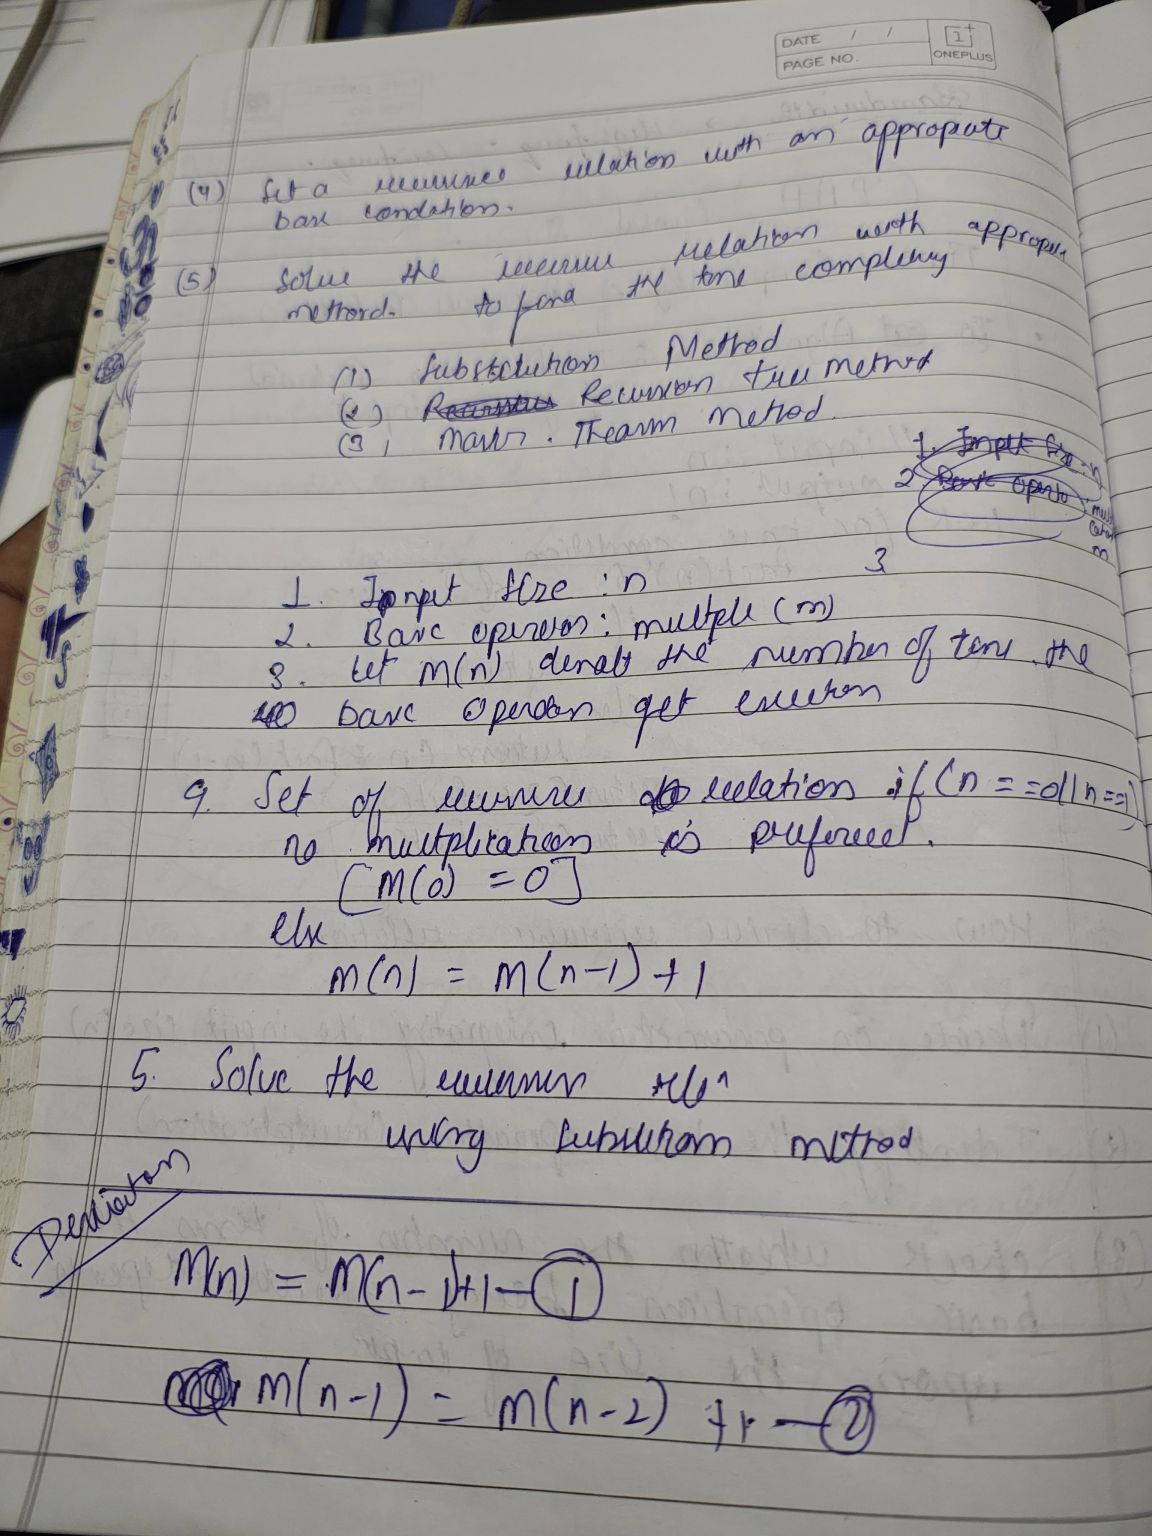 DATE / /
PAGE NO.
ONEPLUS
(4) Set a recurrence relation with an appropriate
base condation.
(5) Solve the recurrence relation with appropriate
method. to find the time complexity
(1) Substitution Method
(2) Recursion tree method
(3) Master. Thearm Method.
1. Input Size : n
2. Basic operato
3
1. Input Size : n
2. Basic operation : multiple (m)
3. let M(n) denats the number of time the
basic operation get execution
4. Set of recurrence relation if (n == 0 || n == 1)
no multplication is preferred.
[M(0) = 0]
else
M(n) = M(n-1) + 1
5. Solve the recurrence relⁿ
using substitution method
Deviation
M(n) = M(n-1)+1 - (1)
M(n-1) = M(n-2) +1 - (2)